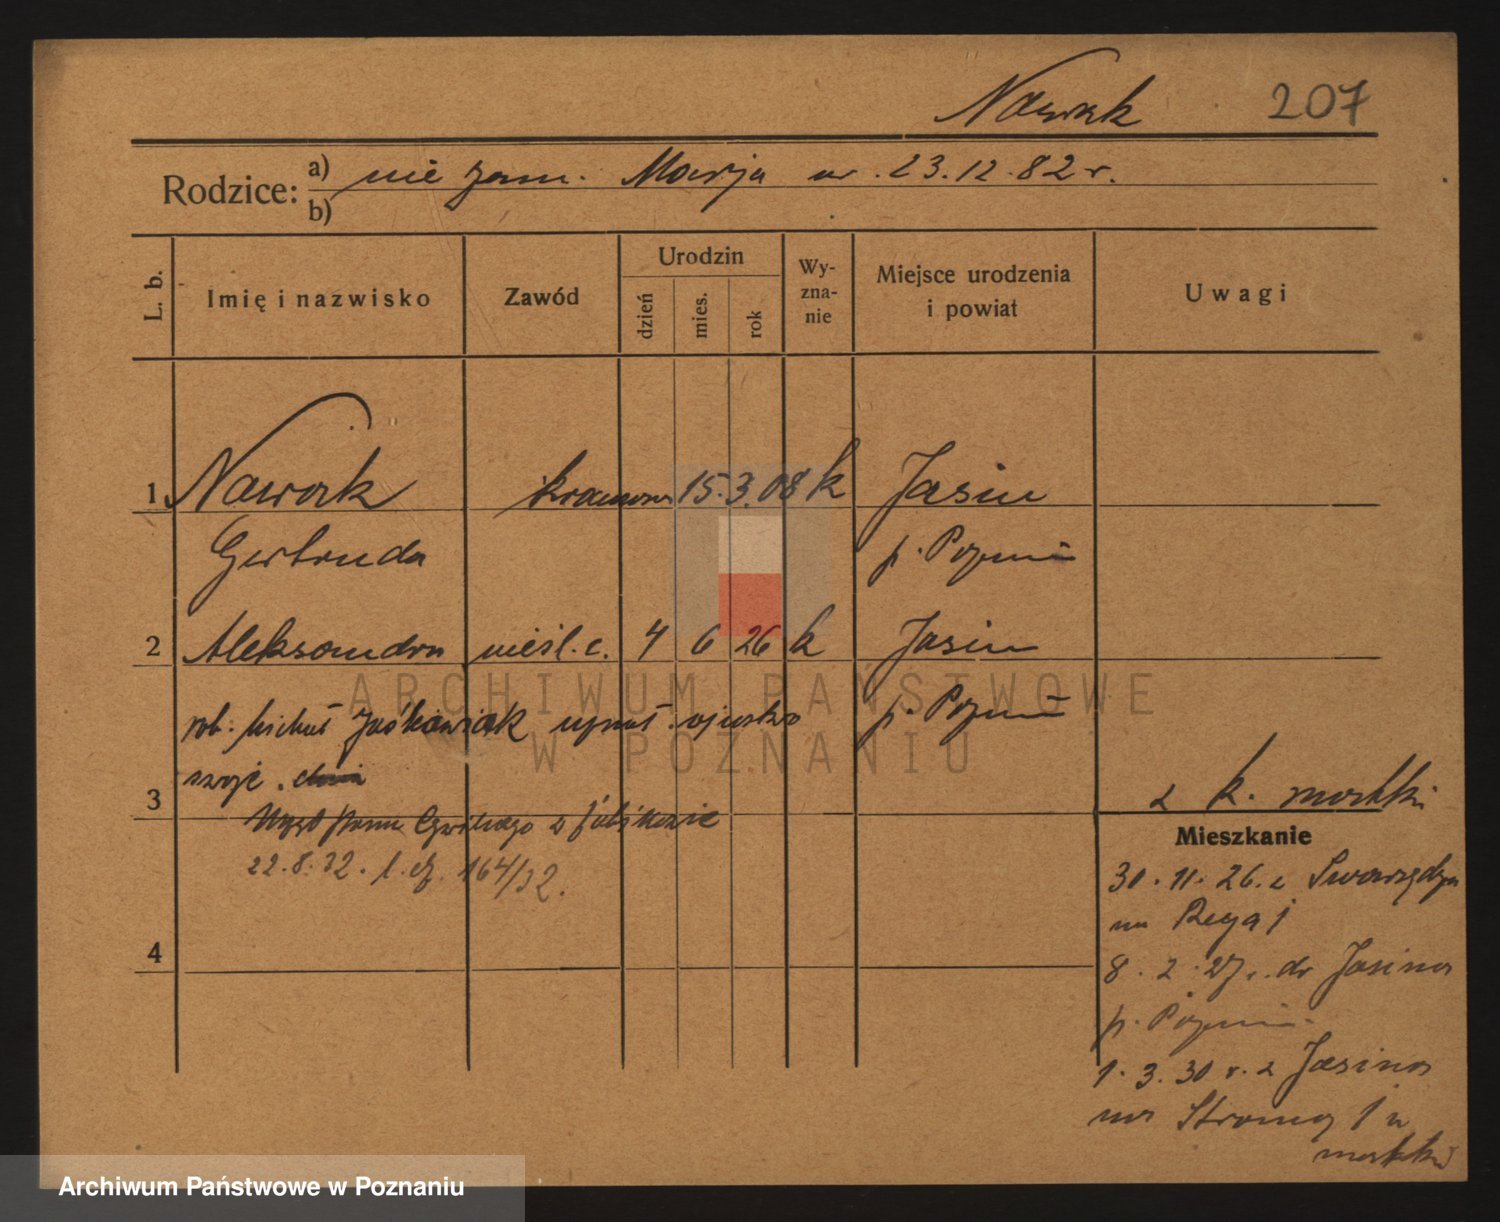 Nowak 207
Rodzice: a) nie zam. Marja ur. 23.12.82 r.
b)
L. b. Imię i nazwisko Zawód Urodzin dzień mies. rok Wy-zna-nie Miejsce urodzenia i powiat Uwagi
1 Nowak 15. 3. 08 k Jasin
Gertruda p. Poznań
2 Aleksandra nieśl. c. 4 6 26 k Jasin
ARCHIWUM PAŃSTWOWE
rob. Michał Jaśkowiak uznał ojcostwo p. Poznań
W POZNANIU
swoje
3 z k. matki
Urząd Stanu Cywilnego w
Mieszkanie
22.8.32. l. dz. 164/32.
30.11.26. z Swarzędza
na Regaj
4
8.2.27 r. do Jasina
p. Poznań
1.3.30 r. z Jasina
na Stroma 1 u
matki
Archiwum Państwowe w Poznaniu